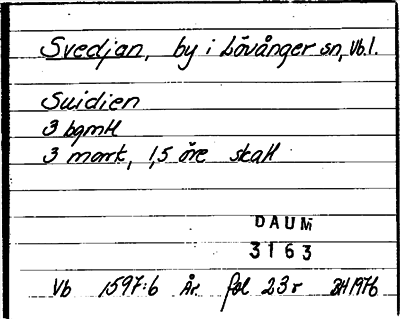 Svedjan, by i Lövånger sn, Vb.l.
Suidien
3 bgmtl
3 mark, 1,5 öre skatt
DAUM
3163
Vb 1597:6 År fol 23r 1976